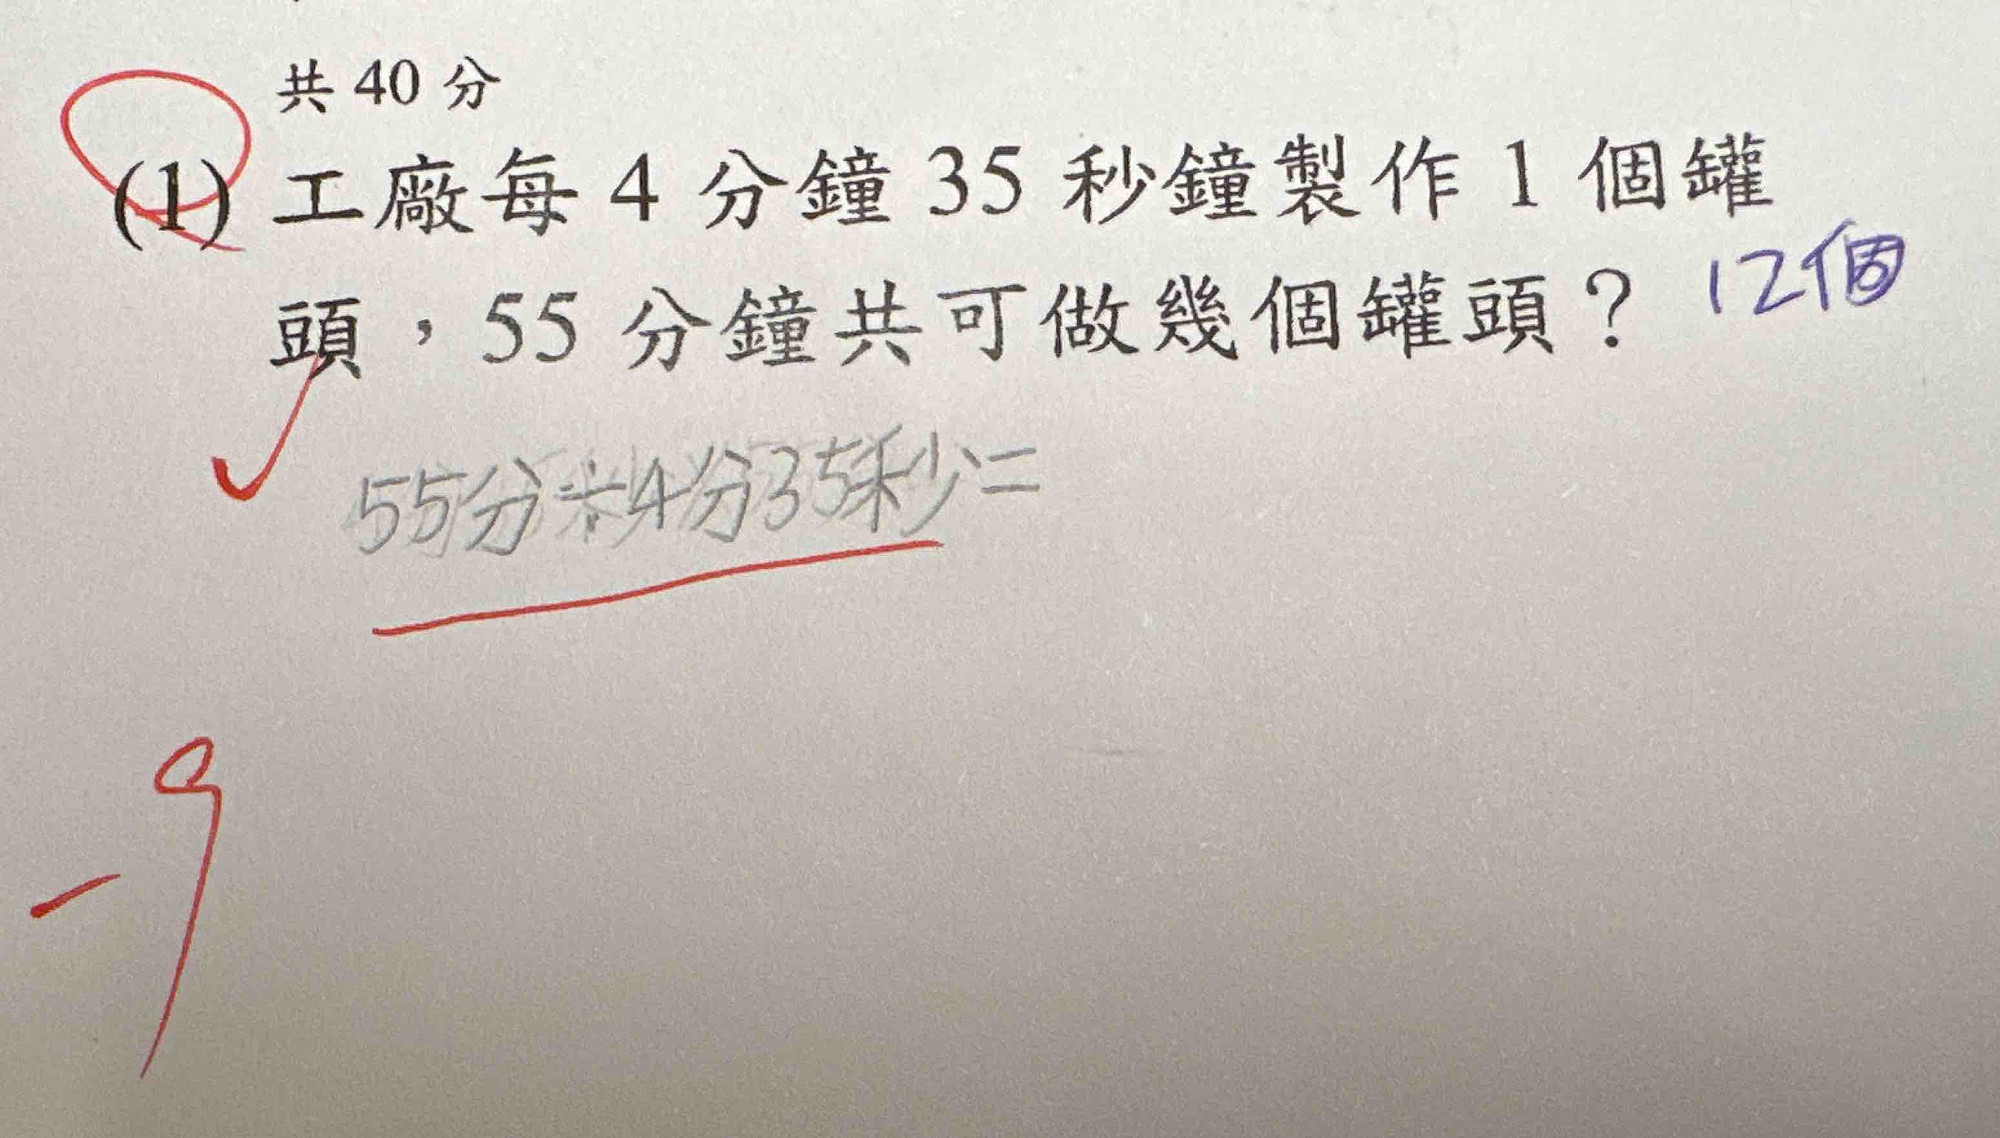 共 40 分
(1) 工廠每 4 分鐘 35 秒鐘製作 1 個罐
頭，55 分鐘共可做幾個罐頭？ 12個
55分÷4分35秒=
-9